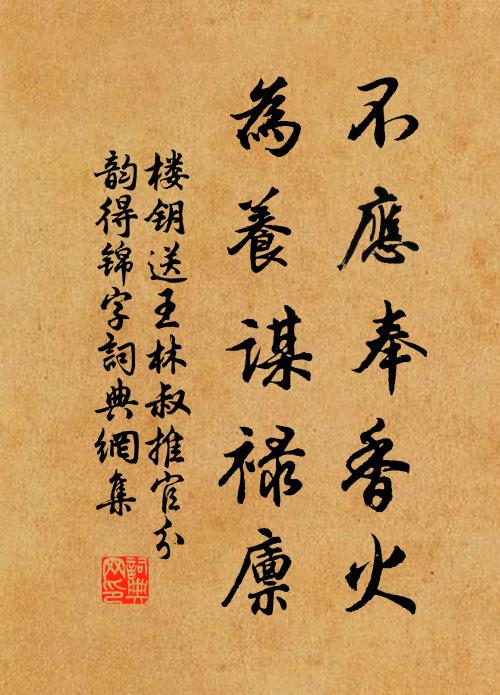 不應奉香火
為養謀祿廩
楼钥送王林叔推官分
韵得锦字詞典網集
詞典
网印